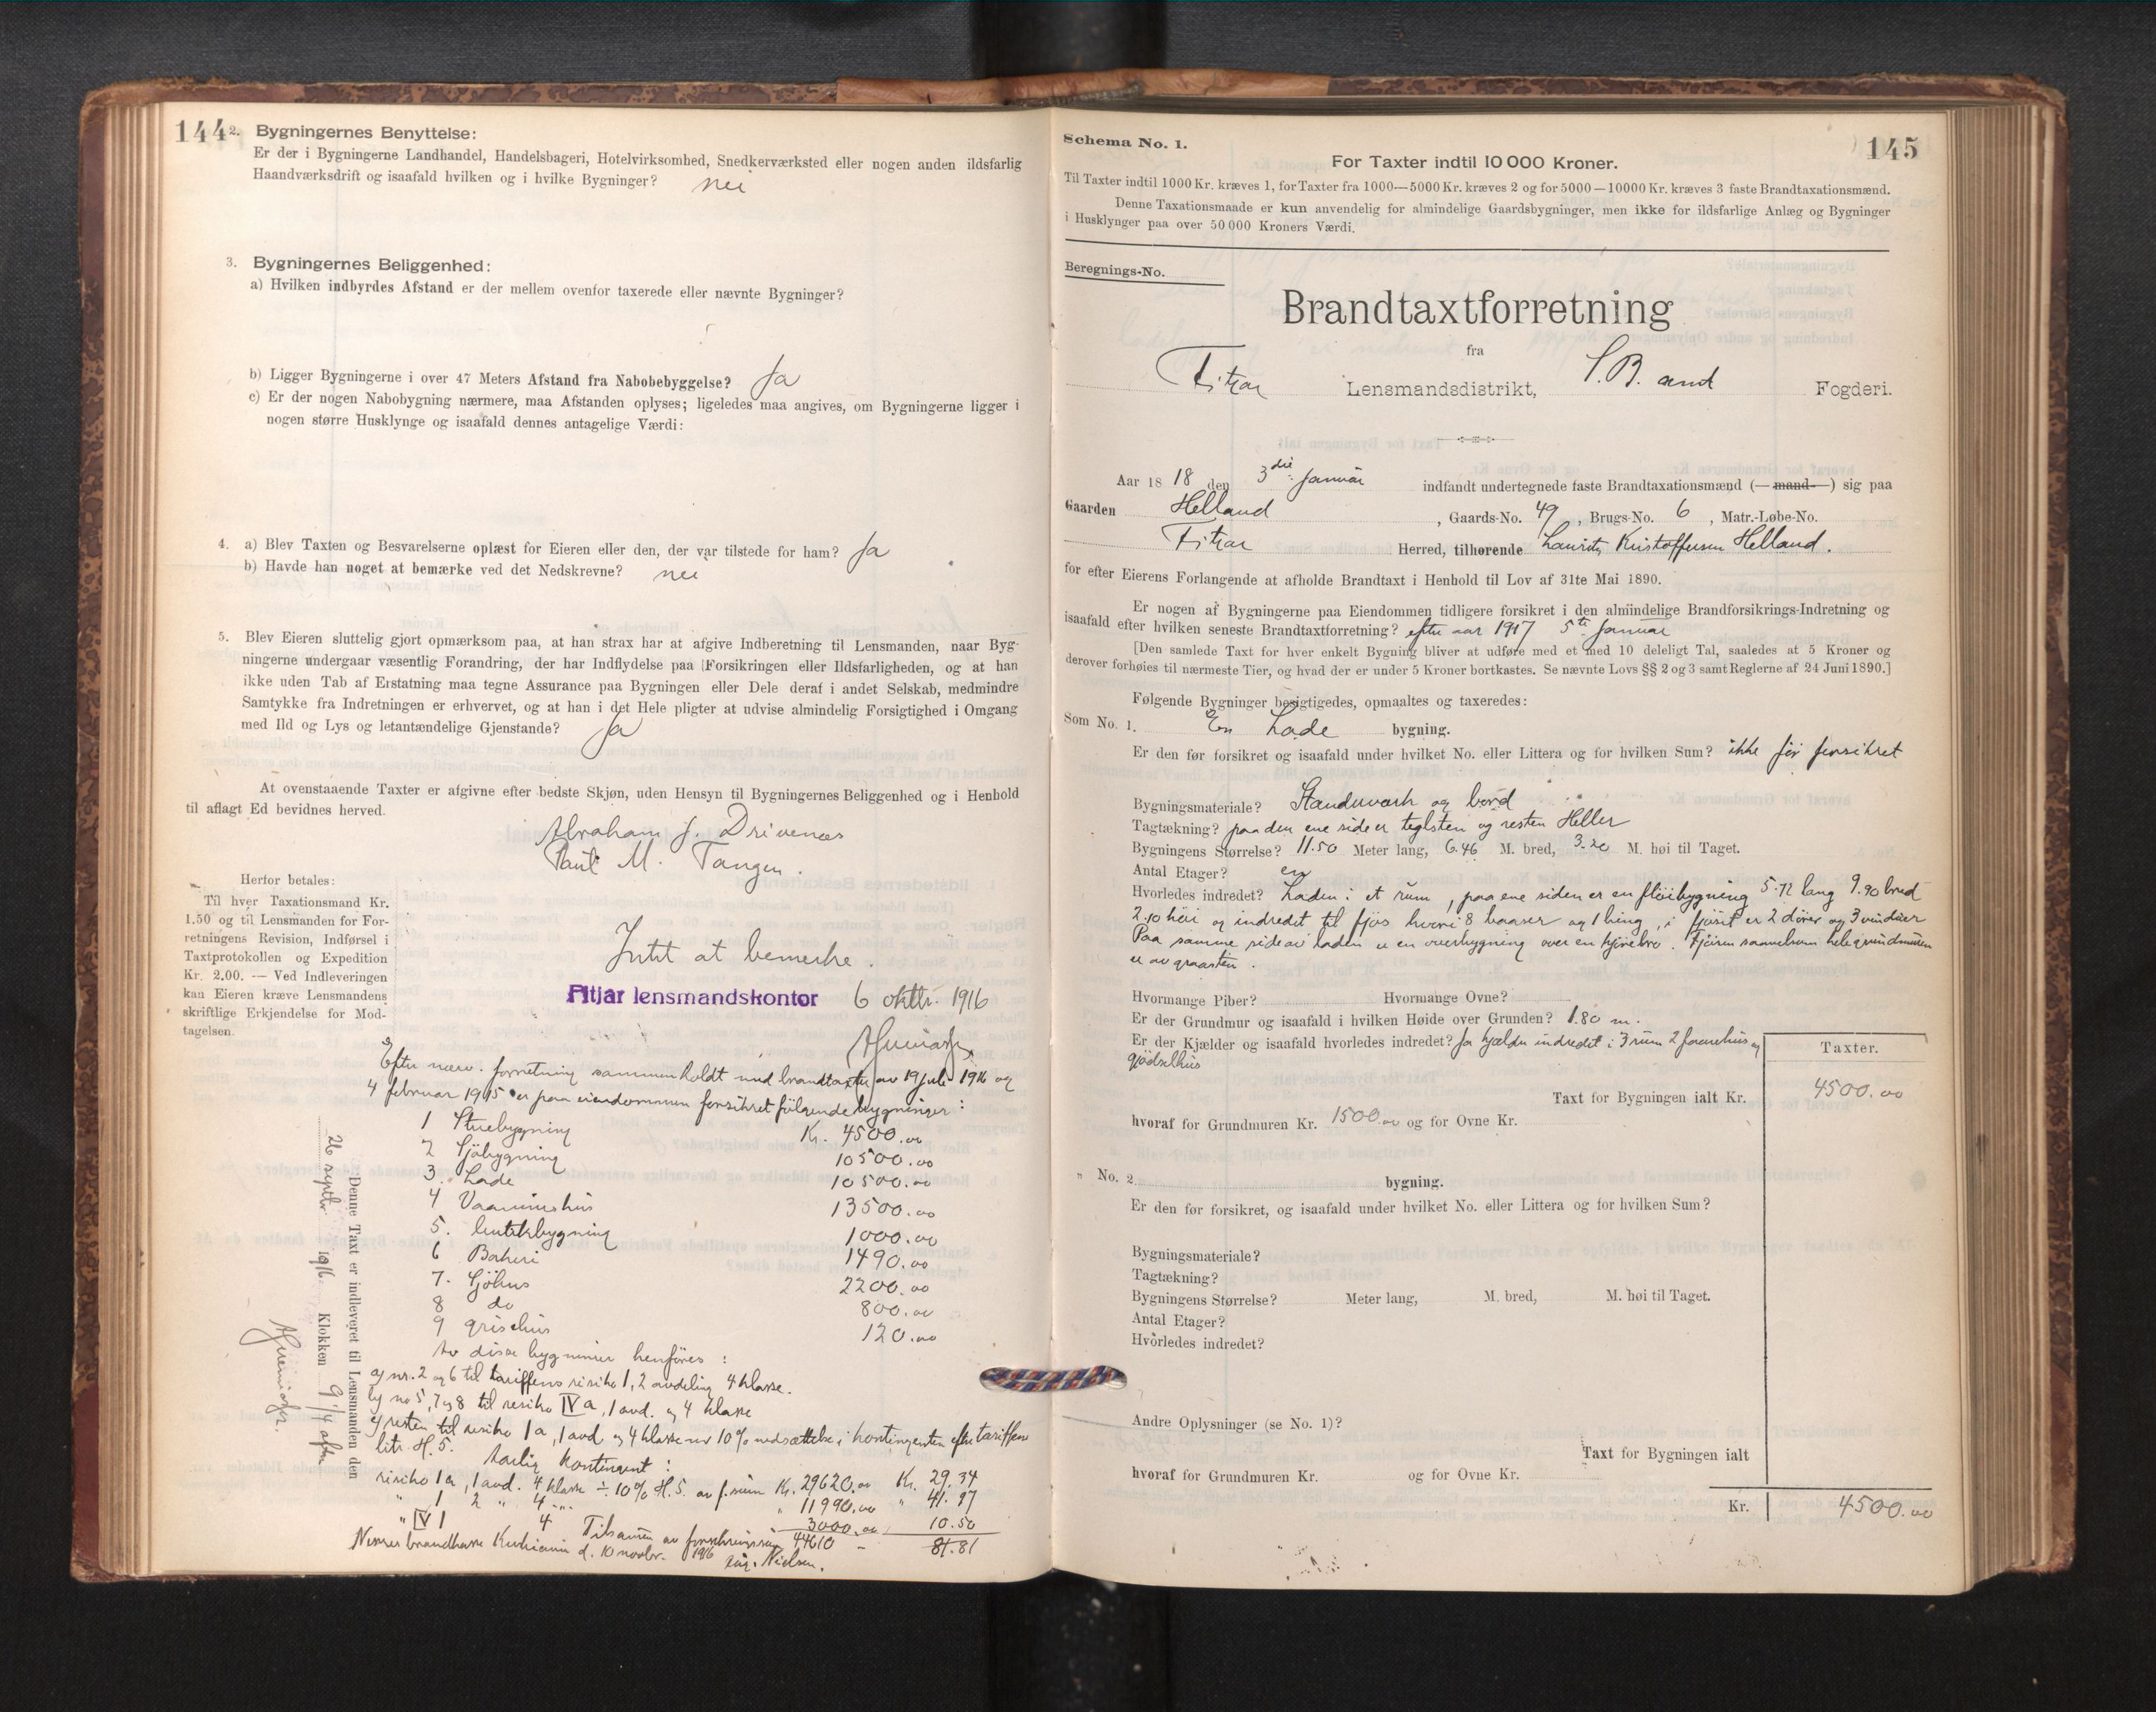 144
2. Bygningernes Benyttelse:
Er der i Bygningerne Landhandel, Handelsbageri, Hotelvirksomhed, Snedkerværksted eller nogen anden ildsfarlig
Haandværksdrift og isaafald hvilken og i hvilke Bygninger? nei
3. Bygningernes Beliggenhed:
a) Hvilken indbyrdes Afstand er der mellem ovenfor taxerede eller nævnte Bygninger?
b) Ligger Bygningerne i over 47 Meters Afstand fra Nabobebyggelse? Ja
c) Er der nogen Nabobygning nærmere, maa Afstanden oplyses; ligeledes maa angives, om Bygningerne ligger i
nogen større Husklynge og isaafald dennes antagelige Værdi:
4. a) Blev Taxten og Besvarelserne oplæst for Eieren eller den, der var tilstede for ham? Ja
b) Havde han noget at bemærke ved det Nedskrevne? nei
5. Blev Eieren sluttelig gjort opmærksom paa, at han strax har at afgive Indberetning til Lensmanden, naar Byg-
ningerne undergaar væsentlig Forandring, der har Indflydelse paa Forsikringen eller Ildsfarligheden, og at han
ikke uden Tab af Erstatning maa tegne Assurance paa Bygningen eller Dele deraf i andet Selskab, medmindre
Samtykke fra Indretningen er erhvervet, og at han i det Hele pligter at udvise almindelig Forsigtighed i Omgang
med Ild og Lys og letantændelige Gjenstande? Ja
At ovenstaaende Taxter er afgivne efter bedste Skjøn, uden Hensyn til Bygningernes Beliggenhed og i Henhold
til aflagt Ed bevidnes herved.
Abraham J. Drivenes
Paul M. Tangen.
Herfor betales:
Til hver Taxationsmand Kr.
1.50 og til Lensmanden for For-
retningens Revision, Indførsel i
Taxtprotokollen og Expedition
Kr. 2.00. — Ved Indleveringen
kan Eieren kræve Lensmandens
skriftlige Erkjendelse for Mod-
tagelsen.
Intet at bemerke.
Fitjar lensmandskontor 6 oktbr. 1916
Efter nærv. forretning sammenholdt med brandtaxter av 19 juli 1916 og
4 februar 1915 er paa eiendommen forsikret følgende bygninger:
1 Stuebygning Kr. 4500.00
2 Sjøbygning 10500.00
3. Lade 10500.00
4 Vaaningshus 13500.00
5. butikbygning 1000.00
6 Bakeri 1490.00
7. Sjøhus 2200.00
8 do 800.00
9 grisehus 120.00
Av disse bygninger henføres:
a) nr. 2 og 6 til tariffens risiko 1, 2 avdeling 4 klasse.
b) no 5, 7 og 8 til risiko IV a, 1 avd. og 4 klasse
c) resten til risiko 1 a, 1 avd og 4 klasse med 10% nedsættelse i kontingenten efter tariffens
litr. H. 5.
Aarlig kontingent:
risiko 1 a, 1 avd. 4 klasse ÷ 10% H. 5. av f. sum Kr. 29620.00 Kr. 29.34
" 1 2 " 4 " " 11990.00 " 41.97
" IV 1 4 3000.00 10.50
Tilsammen av forsikringssum 44610 - 81.81
Norges brandkasse Kristiania d. 10 novbr. 1916 Nielsen.
Denne Taxt er indleveret til Lensmanden den
26 septbr 1916 Klokken 9 1/4 aften
145
Schema No. 1.
For Taxter indtil 10 000 Kroner.
Til Taxter indtil 1000 Kr. kræves 1, for Taxter fra 1000—5000 Kr. kræves 2 og for 5000—10000 Kr. kræves 3 faste Brandtaxationsmænd.
Denne Taxationsmaade er kun anvendelig for almindelige Gaardsbygninger, men ikke for ildsfarlige Anlæg og Bygninger
i Husklynger paa over 50 000 Kroners Værdi.
Beregnings-No.
Brandtaxtforretning
fra
Fitjar Lensmandsdistrikt, S. B. amt Fogderi.
Aar 18 18 den 3die Januar indfandt undertegnede faste Brandtaxationsmænd (—mand—) sig paa
Gaarden Helland, Gaards-No. 49, Brugs-No. 6, Matr.-Løbe-No.
Fitjar Herred, tilhørende Laurits Kristoffersen Helland.
for efter Eierens Forlangende at afholde Brandtaxt i Henhold til Lov af 31te Mai 1890.
Er nogen af Bygningerne paa Eiendommen tidligere forsikret i den almindelige Brandforsikrings-Indretning og
isaafald efter hvilken seneste Brandtaxtforretning? efter aar 1917 5te Januar
[Den samlede Taxt for hver enkelt Bygning bliver at udføre med et med 10 deleligt Tal, saaledes at 5 Kroner og
derover forhøies til nærmeste Tier, og hvad der er under 5 Kroner bortkastes. Se nævnte Lovs §§ 2 og 3 samt Reglerne af 24 Juni 1890.]
Følgende Bygninger besigtigedes, opmaaltes og taxeredes:
Som No. 1. En Lade bygning.
Er den før forsikret og isaafald under hvilket No. eller Littera og for hvilken Sum? ikke før forsikret
Bygningsmateriale? Standerverk og bord
Tagtækning? paa den ene side er teglsten og resten Heller
Bygningens Størrelse? 11.50 Meter lang, 6.46 M. bred, 3.20 M. høi til Taget.
Antal Etager? en
Hvorledes indredet? Laden i et rum, paa ene siden er en fløibygning 5.72 lang 9.90 bred
2.10 høi og indredet til fjøs hvori 8 baaser og 1 bing, i fjøset er 2 dører og 3 vinduer
Paa samme side av laden er en overbygning over en kjørebro. Fjøsen saavelsom hele grundmuren
er av graasten.
Hvormange Piber? Hvormange Ovne?
Er der Grundmur og isaafald i hvilken Høide over Grunden? 1.80 m.
Er der Kjælder og isaafald hvorledes indredet? Ja kjelder indredet i 3 rum 2 faarehus og
gjødselhus
Taxter.
Taxt for Bygningen ialt Kr. 4500.00
hvoraf for Grundmuren Kr. 1500.00 og for Ovne Kr.
" No. 2. bygning.
Er den før forsikret, og isaafald under hvilket No. eller Littera og for hvilken Sum?
Bygningsmateriale?
Tagtækning?
Bygningens Størrelse? Meter lang, M. bred, M. høi til Taget.
Antal Etager?
Hvorledes indredet?
Andre Oplysninger (se No. 1)?
Taxt for Bygningen ialt
hvoraf for Grundmuren Kr. og for Ovne Kr.
Kr. 4500.00